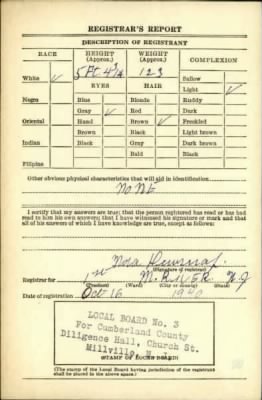 REGISTRAR'S REPORT
DESCRIPTION OF REGISTRANT
RACE HEIGHT (Approx.) WEIGHT (Approx.) COMPLEXION
5 Ft 4¾ 123 Sallow
White ✓ EYES HAIR Light ✓
Negro Blue Blonde Ruddy
Gray ✓ Red Dark
Oriental Hazel Brown ✓ Freckled
Brown Black Light brown
Indian Black Gray Dark brown
Bald Black
Filipino
Other obvious physical characteristics that will aid in identification
NONE
I certify that my answers are true; that the person registered has read or has had read to him his own answers; that I have witnessed his signature or mark and that all of his answers of which I have knowledge are true, except as follows:
Nora
(Signature of registrar)
Registrar for M. RIVER N J
(Precinct) (Ward) (City or county) (State)
Date of registration Oct 16 1940
LOCAL BOARD No. 3
For Cumberland County
Diligence Hall, Church St.
Millville, N. J.
(STAMP OF LOCAL BOARD)
(The stamp of the Local Board having jurisdiction of the registrant shall be placed in the above space.)